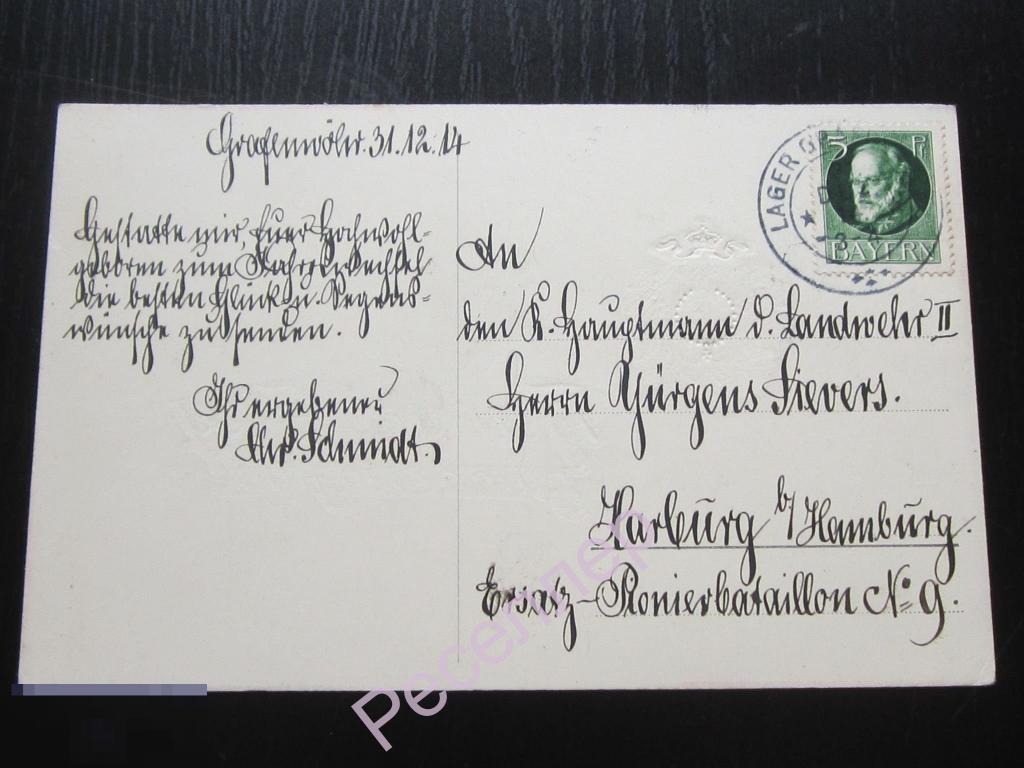 Grafenwöhr 31.12.14
Gestatte mir, Euer Hochwohl-
geboren zum Jahreswechsel
die besten Glück u. Segens-
wünsche zu senden.
Ihr ergebener
Chr. Schmidt.
An
den K. Hauptmann d. Landwehr II
Herrn Jürgens Sievers.
Harburg b/Hamburg.
Ersatz-Pionierbataillon No 9.
LAGER
5 Pf
BAYERN
Реселлер